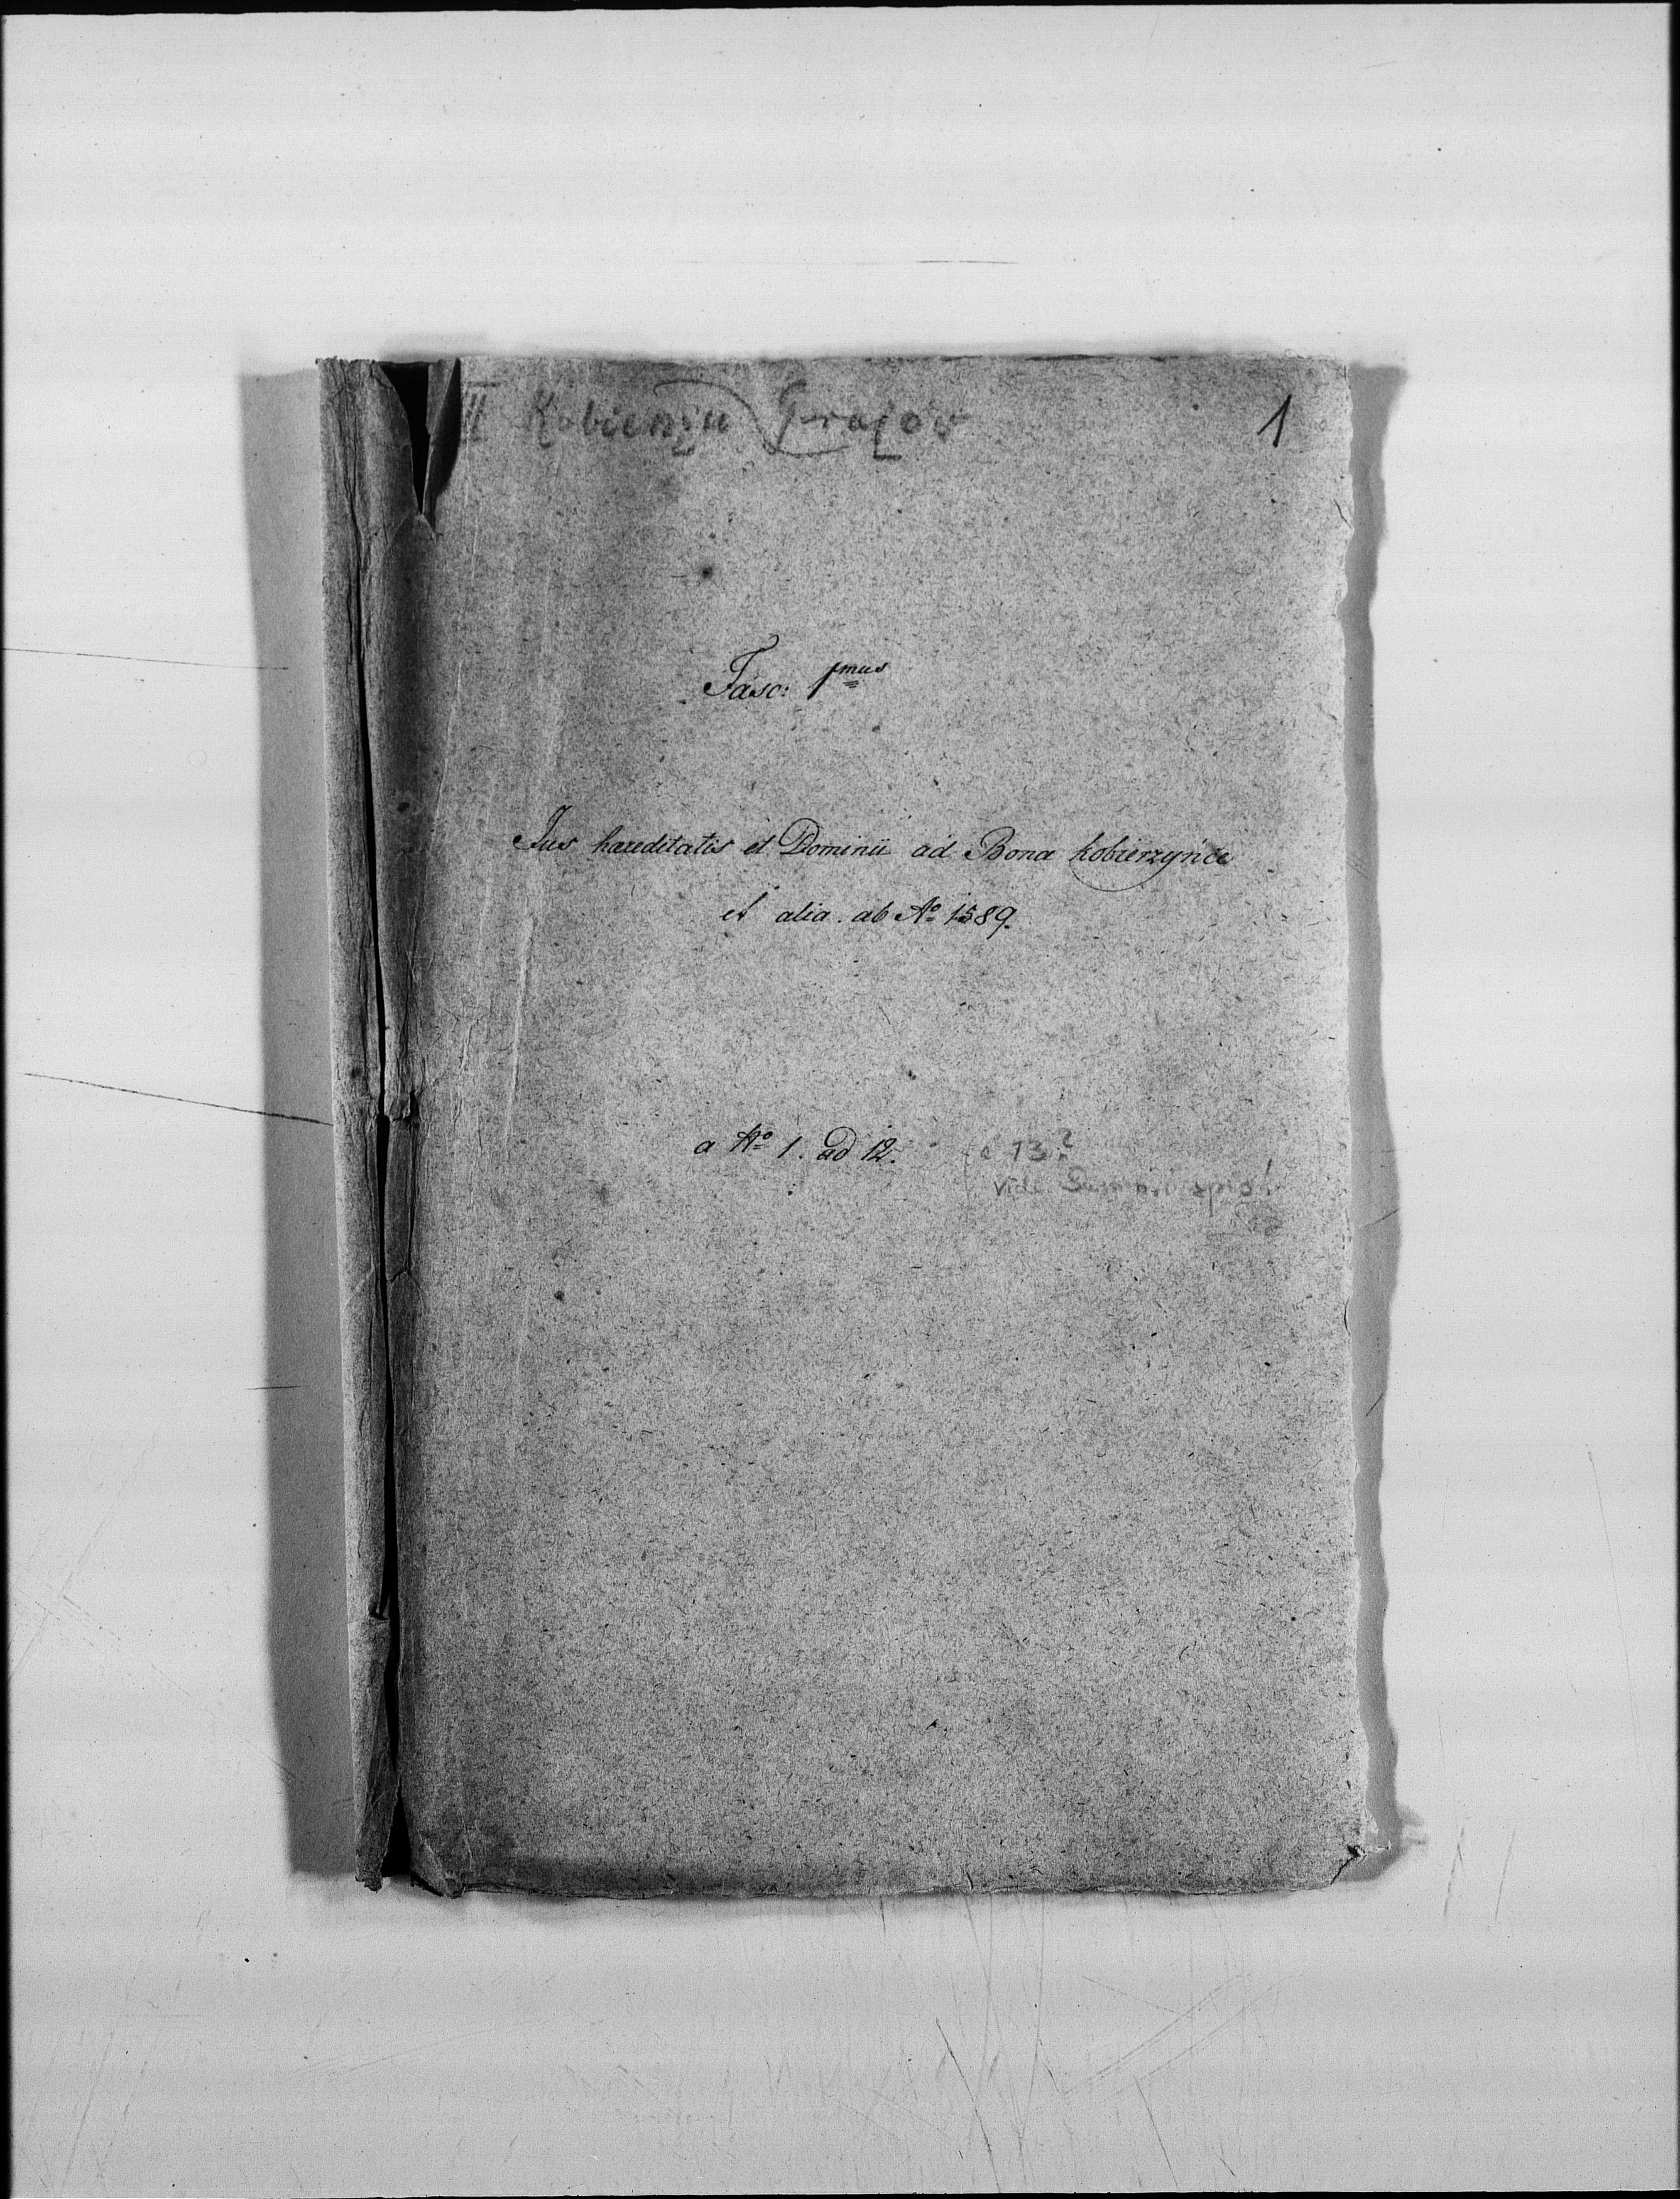 III Kobierzyn Grajów
1
Fasc: 1mus
Jus haereditatis et Dominii ad Bona Kobierzyńce
et alia. ab Ao 1589.
a No 1. ad 12. 13?
vide